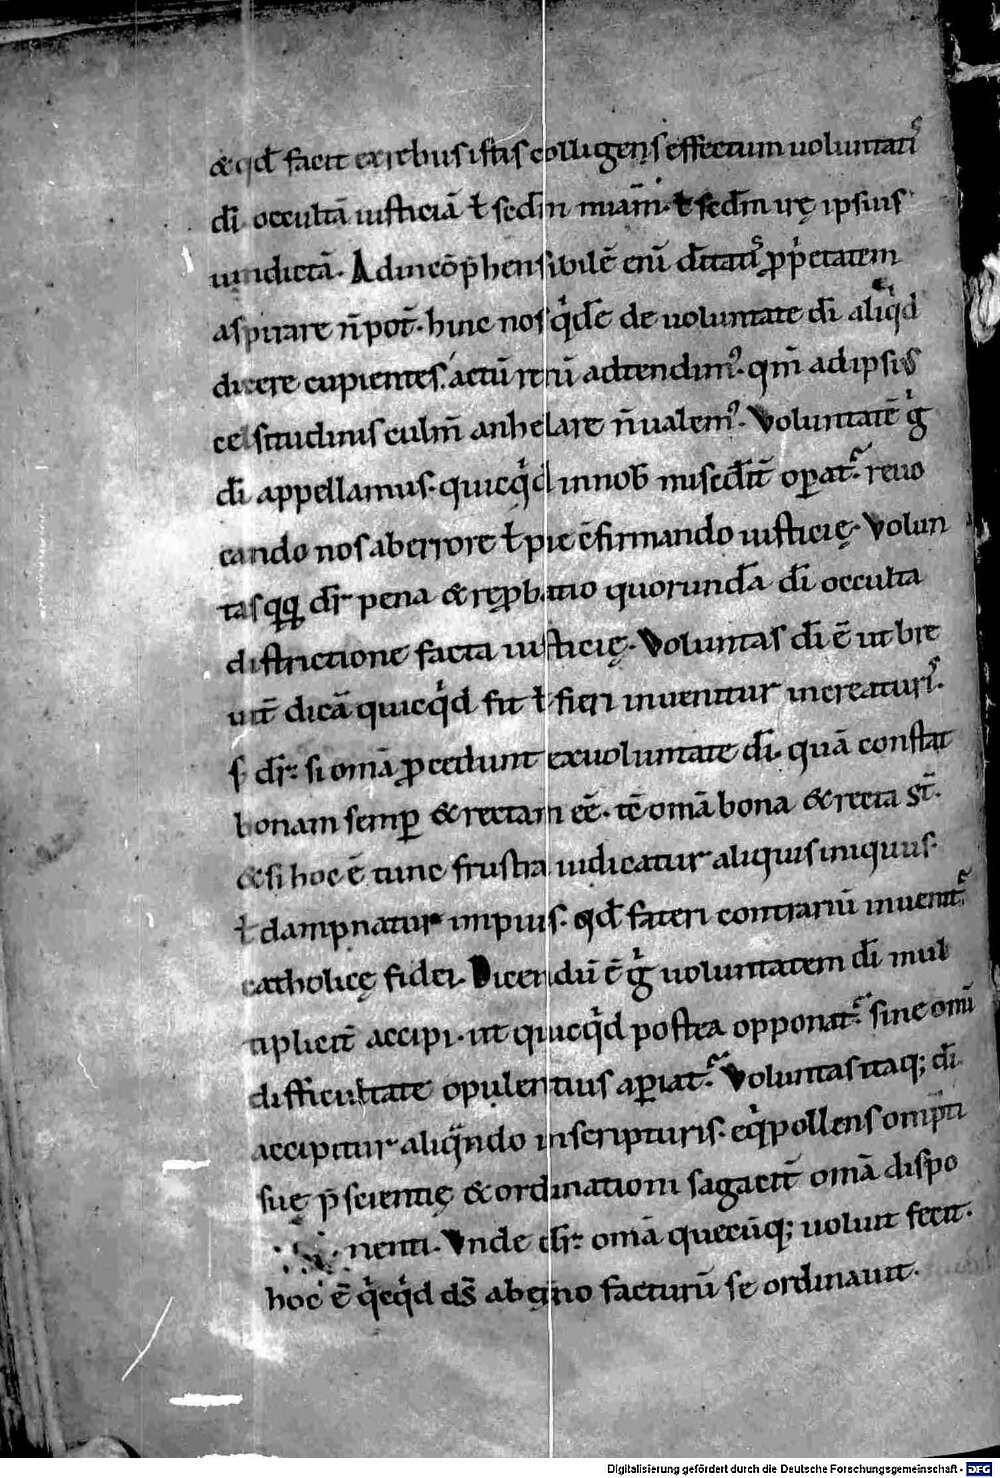 & qđ facit ex rebus istis colligens effectum uoluntatis
dī occultā iusticiā ł scđm mīam· ł scđm irę ipsius
uindictā. Ad incōp̄hensibilē enī dītatis ꝓp̄etatem
aspirare n̄ pot̄· hinc nos qͥdē de uoluntate dī aliqͥd
dicere cupientes. actū rerū adtendimꝰ· qm̄ ad ipsius
celsitudinis culm̄ anhelare n̄ ualemꝰ. Voluntatē gͥ
dī appellamus· quicqͥd in nob̄ misc̄dit̄ oꝑat᷑· reuo
cando nos ab errore ł pie c̄firmando iusticię. Volun
tas qꝗ dr̄ pena & reꝓbatio quorundā dī occulta
districtione facta iusticię. Voluntas dī ē ut bre
uit̄ dicā quicqͥd fit ł fieri inuenitur in creaturis.
S; dr̄· si om̄a ꝓcedunt ex uoluntate dī· quā constat
bonam semꝑ & rectam eē· tc̄ om̄a bona & recta st̄.
& si hoc ē tunc frustra iudicatur aliquis iniquus·
ł dampnatur impius· qđ fateri contrariū inuenit᷑
catholicę fidei. Dicendū ē gͥ uoluntatem dī mul
tiplicit̄ accipi· ut quicqͥd postea opponat᷑· sine omī
difficultate opulentius aꝑiat᷑. Voluntas itaq; dī
accipitur aliqͣndo in scripturis· eqͥpollens omp̄ti
suę p̄scientię & ordinationi sagacit̄ om̄a dispo
nenti. Vnde dr̄· om̄a quecūq; uoluit fecit.
hoc ē qͥcqͥd ds̄ ab eterno facturū se ordinauit.
Digitalisierung gefördert durch die Deutsche Forschungsgemeinschaft - DFG